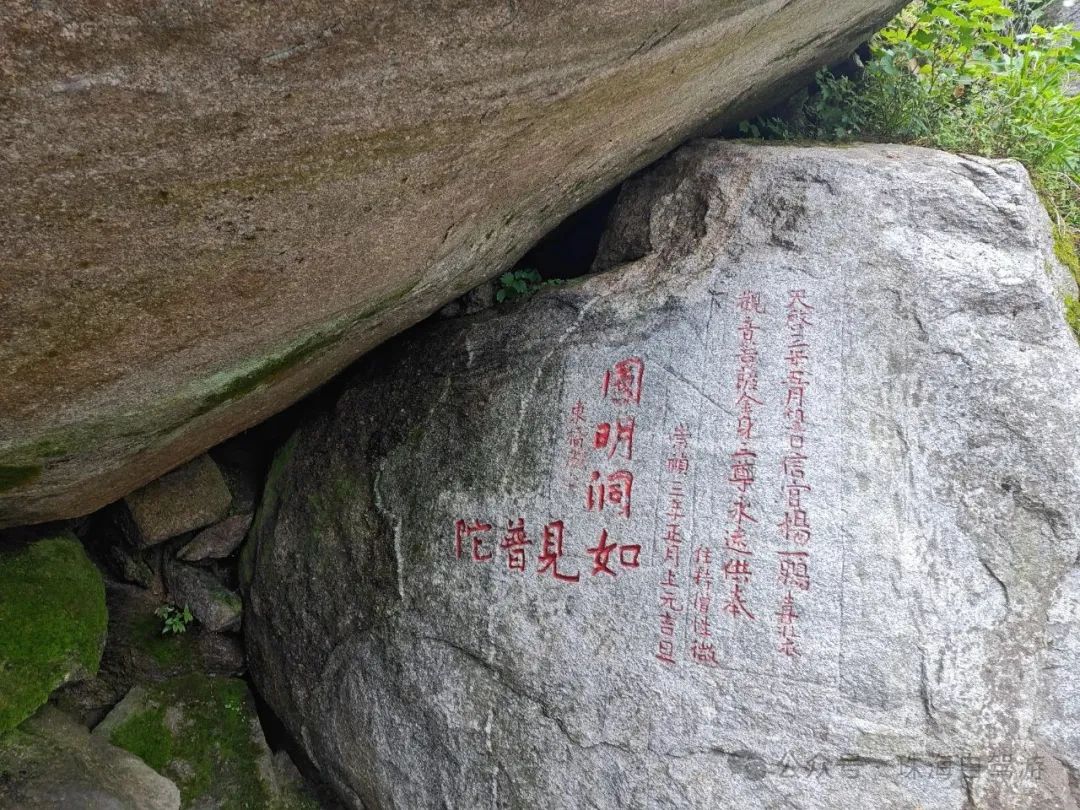 天啓三年五月望日信官楊一鵬喜裝
觀音菩薩金身一尊永遠供奉
住持僧性徹
崇禎三年正月上元吉旦
圓明洞如見普陀
東
公众号·珠海自驾游